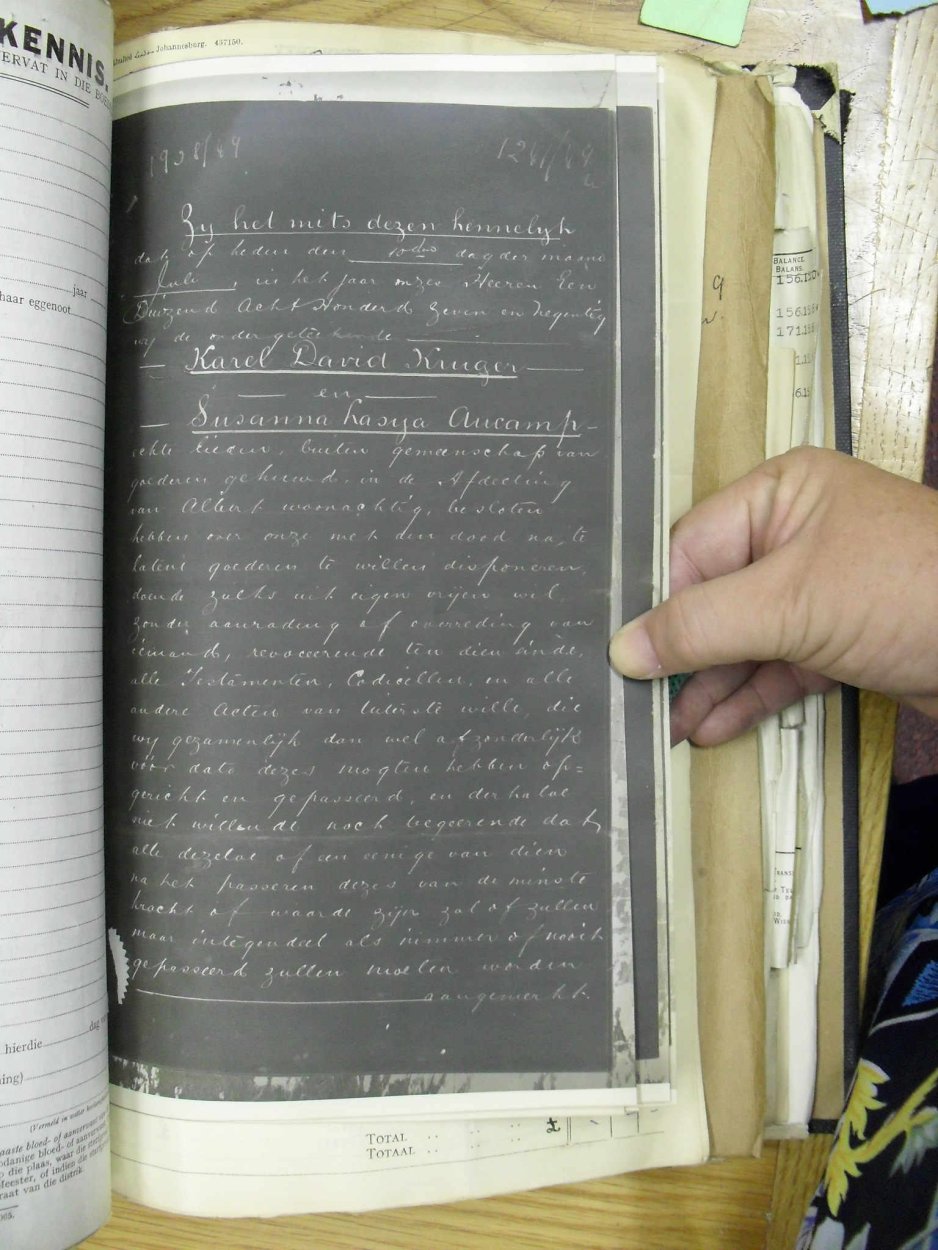 KENNIS.
ERVAT IN DIE BOE
jaar
haar eggenoot
Johannesburg. 457150.
1928/49
Zy het mits dezen kennelyk
dat op heden den 10den dag der maand
Juli, in het jaar onzes Heeren Een
Duizend Acht Honderd Zeven en Negentig
wy de ondergeteekende
Karel David Kruger
en
Susanna Aucamp
echte lieden, buiten gemeenschap van
goederen gehuwd, in de Afdeeling
van Albert woonachtig, besloten
hebben over onze met den dood na te
laten goederen te willen disponeren,
doende zulks uit eigen vrijen wil
zonder aanrading of overreding van
iemand, revoceerende ten dien einde,
alle Testamenten, Codicillen, en alle
andere Acten van uiterste wille, die
wy gezamenlijk dan wel afzonderlijk
vóór dato dezes mogten hebben op=
gericht en gepasseerd, en derhalve
niet willende noch begeerende dat
alle dezelve of een eenige van dien
na het passeren dezes van de minste
kracht of waarde zijn zal of zullen
maar integendeel als nimmer of nooit
gepasseerd zullen moeten worden
aangemerkt.
BALANCE
BALANS.
hierdie
dag v
ning)
aaste bloed- of aanverwant
die plaas, waar die
Meester, of indien die
raat van die distrik.
TOTAL
TOTAAL
£